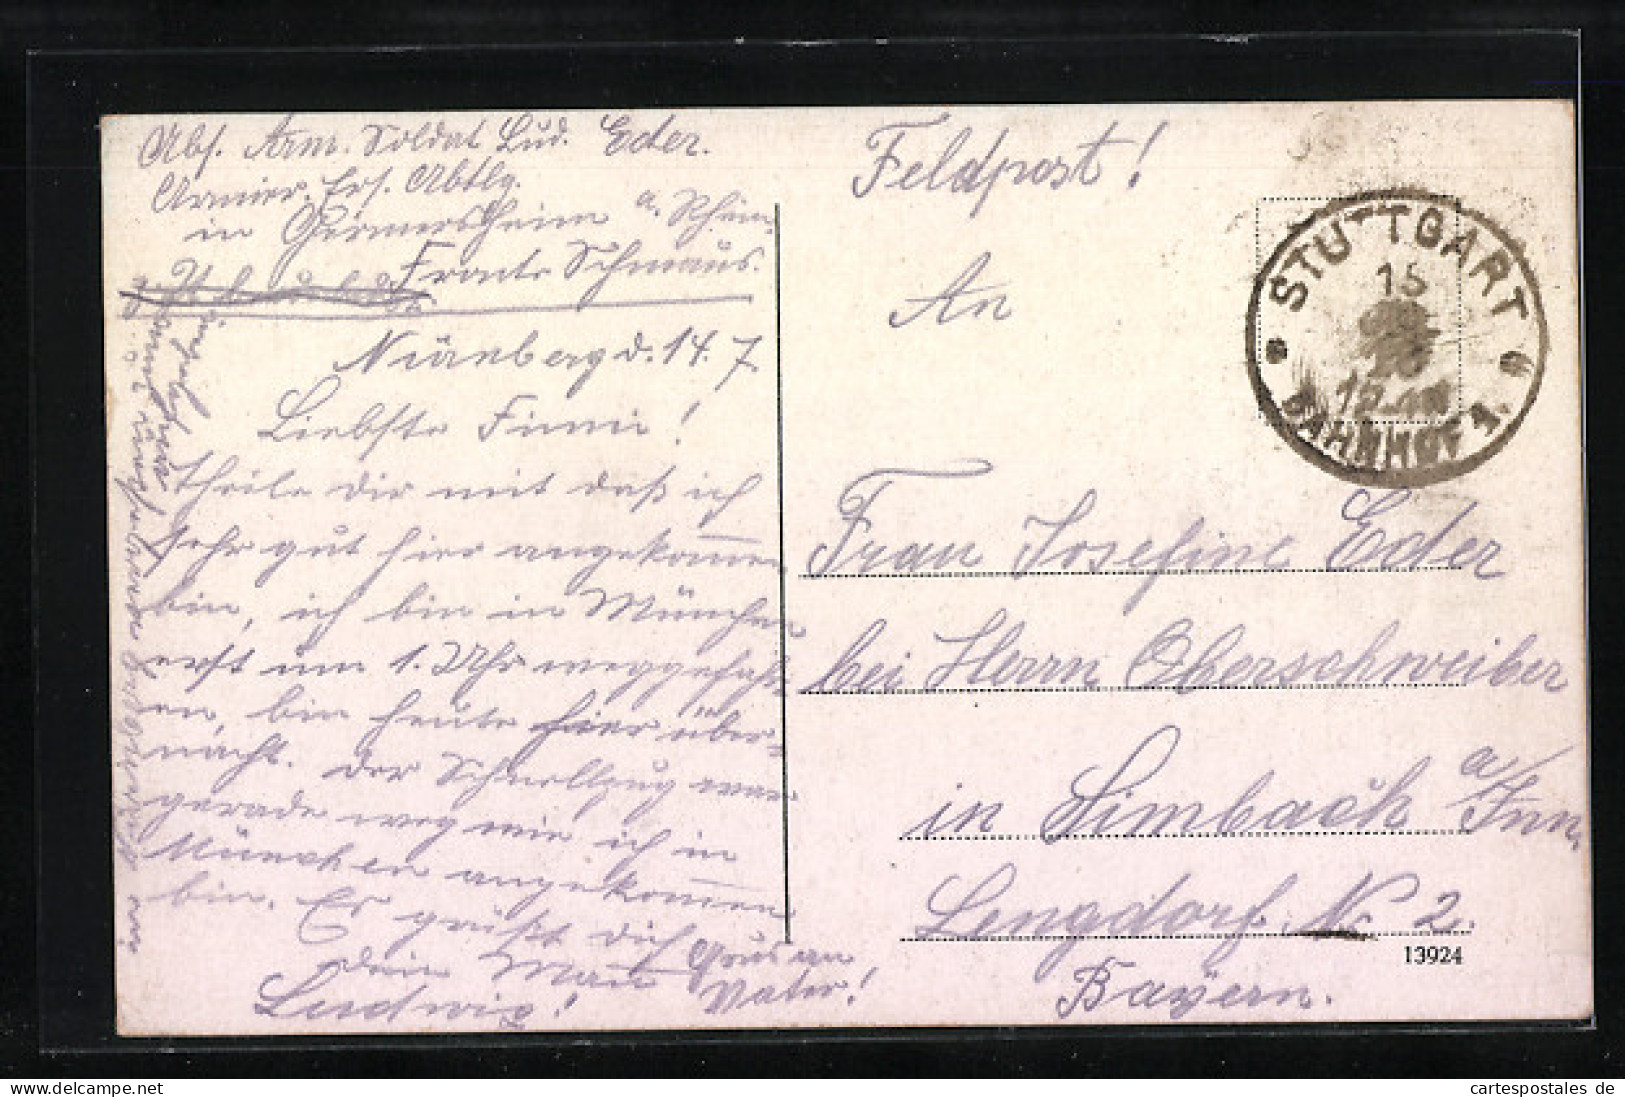 Abs. Arm. Soldat Lud. Eder.
Armier. Ers. Abtlg.
in Germersheim a. Rhein.
Fronte Schmaus.
Nürnberg d. 14. 7.
Liebste Finni!
Theile dir mit daß ich
sehr gut hier angekommen
bin, ich bin in München
erst um 1. Uhr weggefahr
en, bin heute hier über-
nacht. Der Schnellzug war
gerade weg wie ich in
München angekommen
bin. Es grüßt dich
dein Mann
Ludwig!
Grus an
Vater!
Feldpost!
An
Frau Josefine Eder
bei Herrn Oberschweiber
in Simbach a/Inn
Lengdorf. Nr. 2.
Bayern.
STUTTGART
15
BAHNHOF 1.
13924
cartespostales de